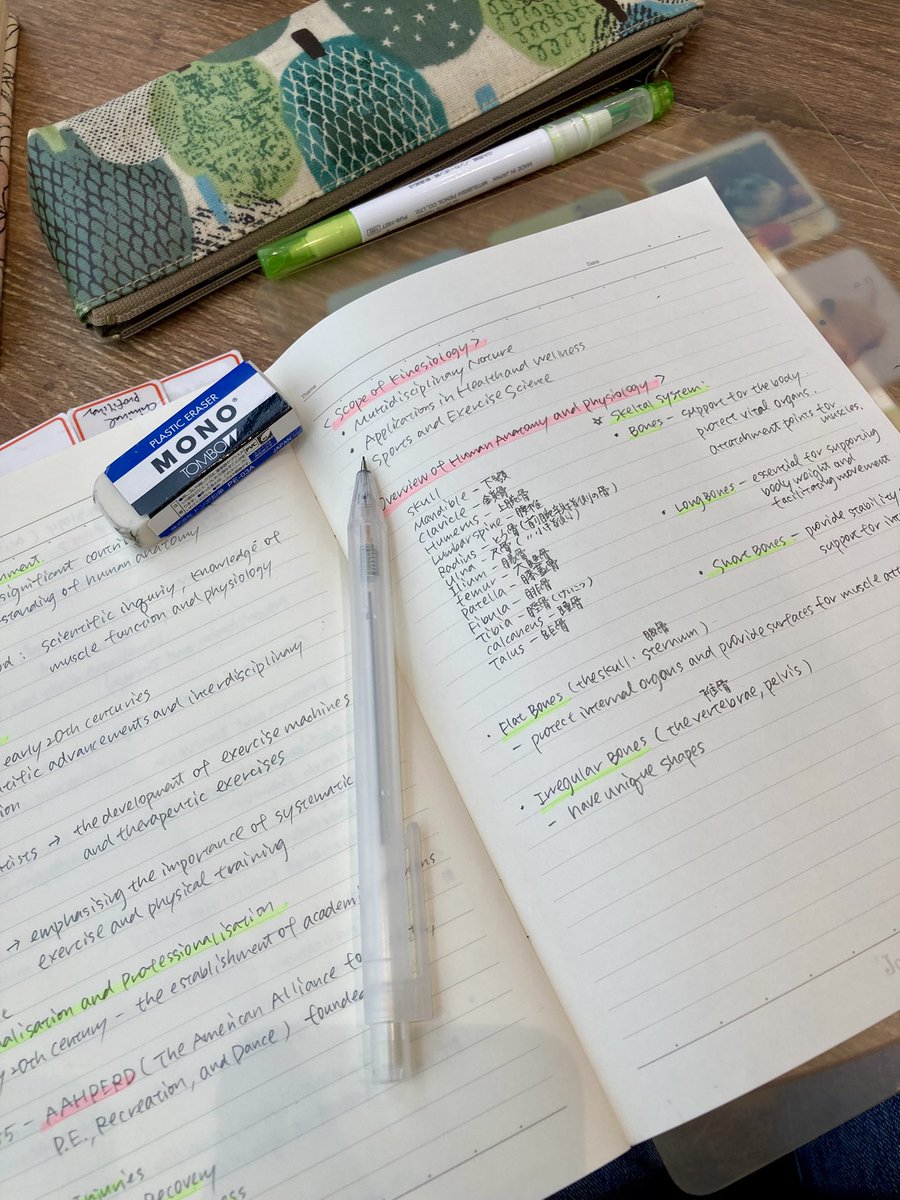 MADE IN JAPAN MITSUBISHI PENCIL CO., LTD.
PUS-102T
criminal
profiling
PLASTIC ERASER
MONO
TOMBOW
PE-03A
JAPAN
significant contri
standing of human anatomy
od : scientific inquiry, knowledge of
muscle function and physiology
early 20th centuries
ntific advancements and interdisciplinary
ion
tists → the development of exercise machines
and therapeutic exercises
→ emphasising the importance of systematic
exercise and physical training
nalisation and professionalisation
y 20th century – the establishment of academi
55 – AAHPERD (The American Alliance fo
P.E., Recreation, and Dance) founded
Injuries
Recovery
Theme
Date
<Scope of Kinesiology>
• Multidisciplinary Nature
• Applications in Health and Wellness
• Sports and Exercise Science
Overview of Human Anatomy and Physiology>
Skull
Mandible – 下顎
Clavicle – 鎖骨
Humerus – 上腕骨
Lumbar spine – 腰椎
Radius –
Ulna – 尺骨
Ilium – 腸骨
Femur – 大腿骨
Patella – 膝蓋骨
Fibula – 腓骨
Tibia – 脛骨 (けいこつ)
calcaneus – 踵骨
Talus – 距骨
☆ Skeltal System
Bones – support for the body
protect vital organs.
attachment points for
muscles.
• Long Bones – essential for supporting
body weight and
facilitating movement
• Short Bones – provide stability
support for
胸骨
• Flat Bones (the skull. sternum)
– protect internal organs and provide surfaces for muscle att
• Irregular Bones (the vertebrae, pelvis)
– have unique shapes